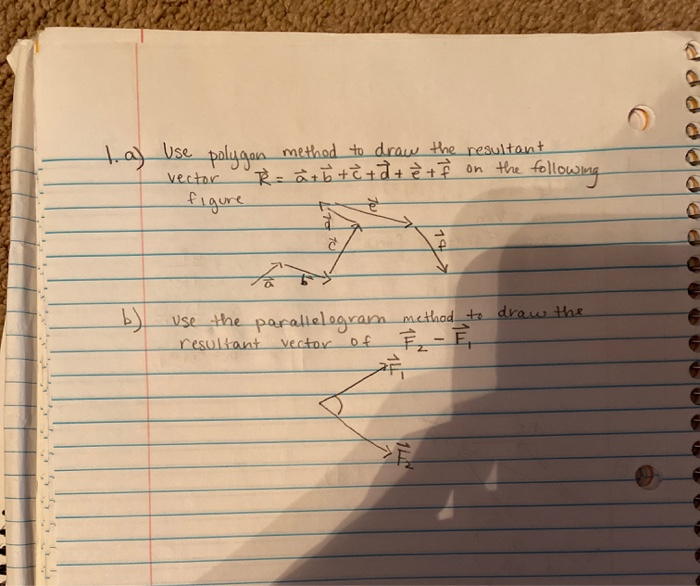 1. a) Use polygon method to draw the resultant
vector R⃗ = a⃗ + b⃗ + c⃗ + d⃗ + e⃗ + f⃗ on the following
figure
e⃗
d⃗
c⃗
f⃗
a⃗
b⃗
b) use the parallelogram method to draw the
resultant vector of F⃗₂ - F⃗₁
F⃗₁
F⃗₂